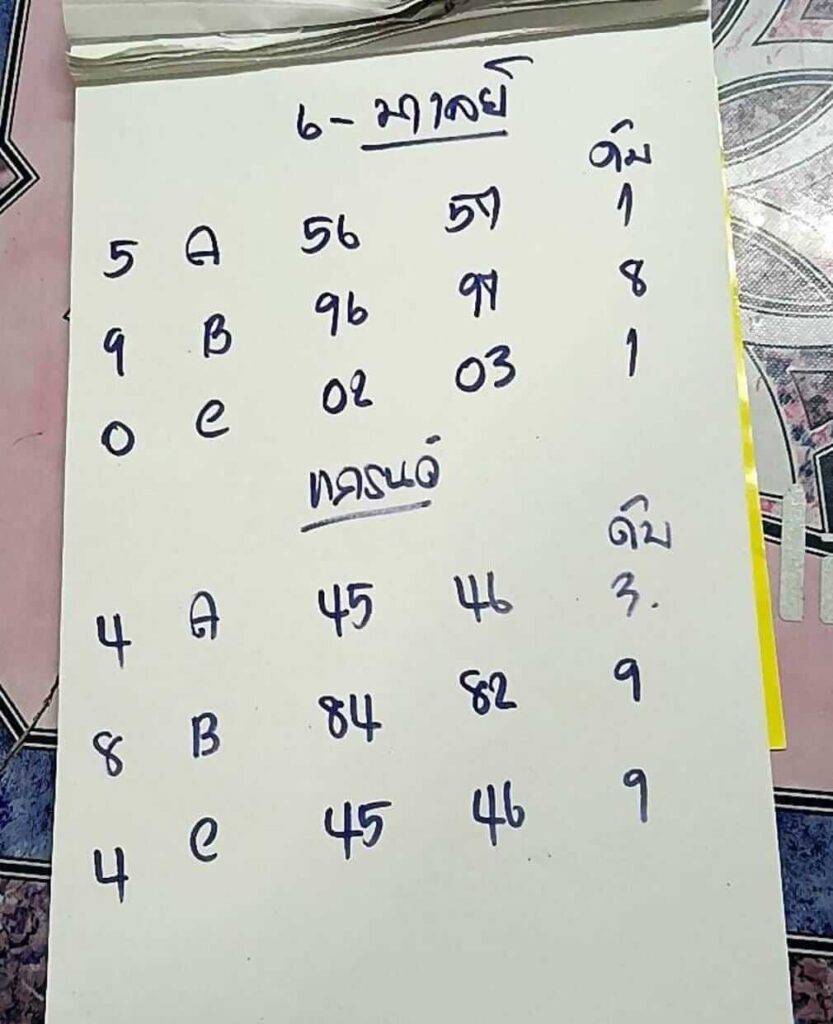 6 - มาเลย์
ดับ
5 A 56 57 1
9 B 96 97 8
0 C 02 03 1
แกรนด์
ดับ
4 A 45 46 3.
8 B 84 82 9
4 C 45 46 9